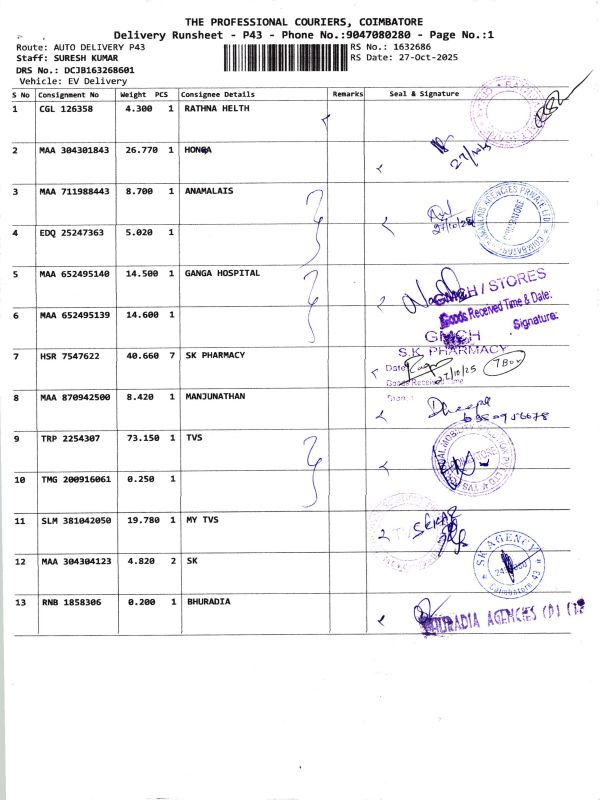 THE PROFESSIONAL COURIERS, COIMBATORE
Delivery Runsheet - P43 - Phone No.:9047080280 - Page No.:1
Route: AUTO DELIVERY P43 RS No.: 1632686
Staff: SURESH KUMAR RS Date: 27-Oct-2025
DRS No.: DCJB163268601
Vehicle: EV Delivery
S No Consignment No Weight PCS Consignee Details Remarks Seal & Signature
1 CGL 126358 4.300 1 RATHNA HELTH
2 MAA 304301843 26.770 1 HONDA
3 MAA 711988443 8.700 1 ANAMALAIS
27/10/25
4 EDQ 25247363 5.020 1
5 MAA 652495140 14.500 1 GANGA HOSPITAL
GMCH / STORES
Goods Received Time & Date:
6 MAA 652495139 14.600 1
Signature:
GMCH
7 HSR 7547622 40.660 7 SK PHARMACY
S.K. PHARMACY
Date
27/10/25
7 Box
Goods Received Time
8 MAA 870942500 8.420 1 MANJUNATHAN
Deepa
9 TRP 2254307 73.150 1 TVS
10 TMG 200916061 0.250 1
11 SLM 381042050 19.780 1 MY TVS
12 MAA 304304123 4.820 2 SK
SK AGENCY
Coimbatore 43
13 RNB 1858306 0.200 1 BHURADIA
BHURADIA AGENCIES (P) LTD